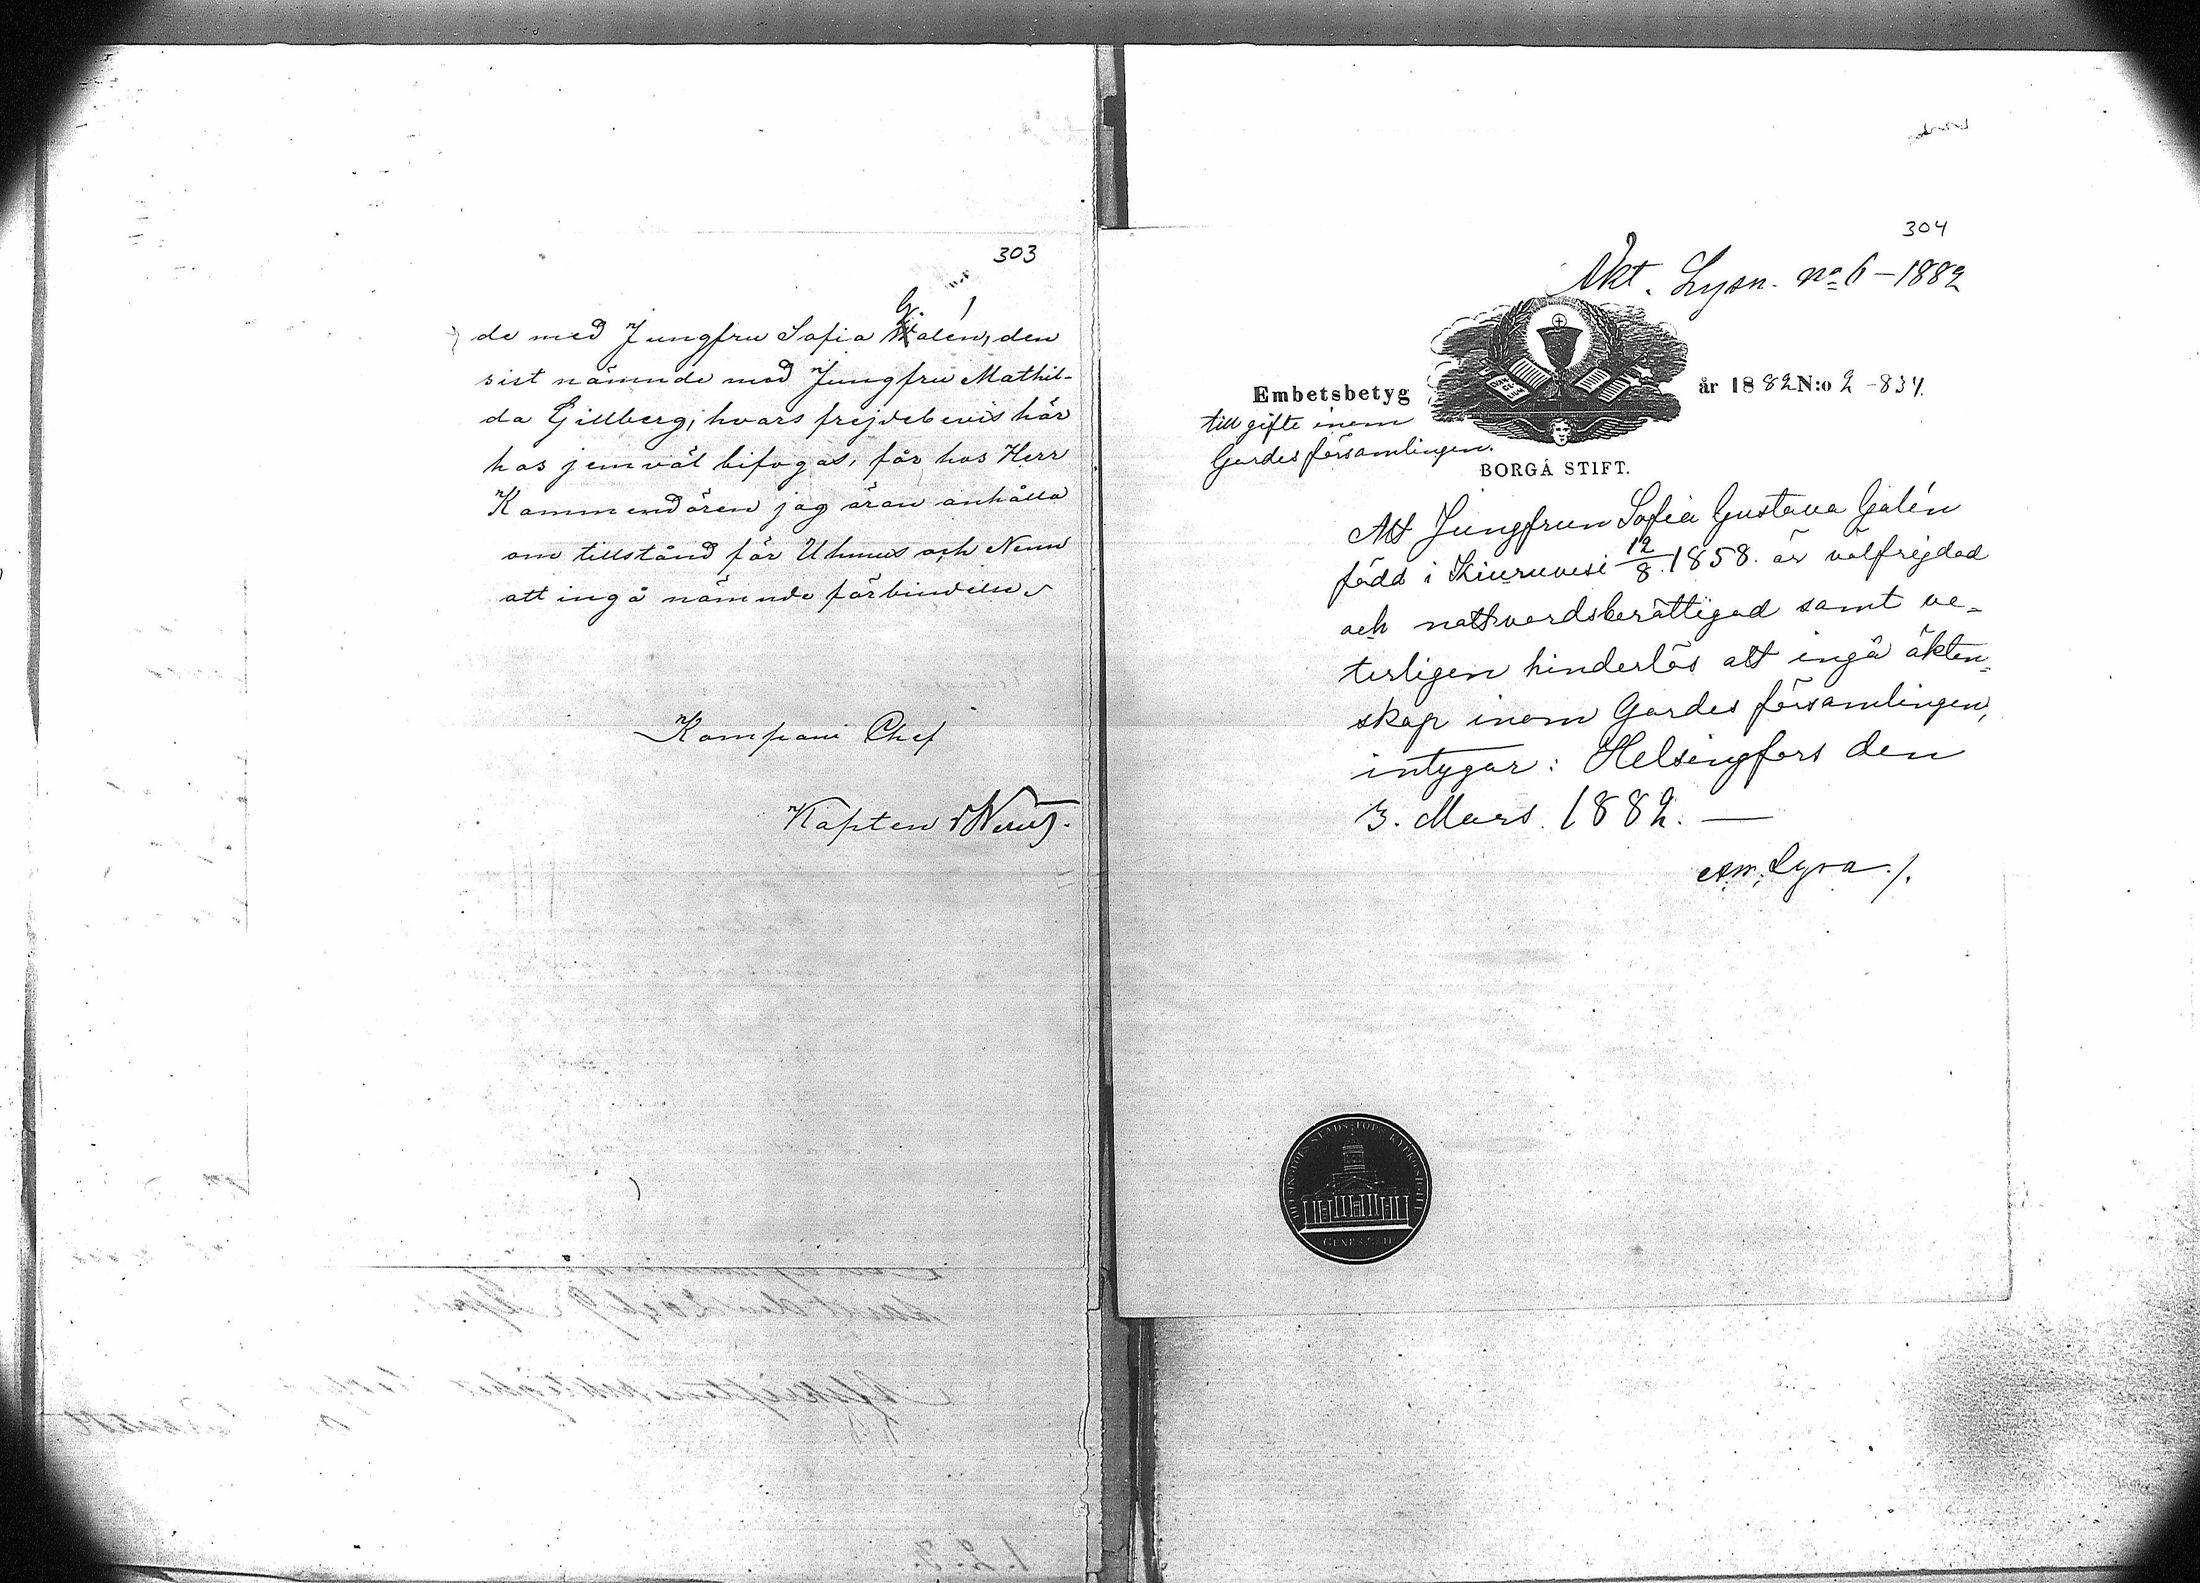 303
de med Jungfru Sofia Galén, den
sist nämnde med Jungfru Mathil-
da Gillberg, hvars frejdebevis här
hos jemväl bifogas, får hos Herr
Kommendören jag äran anhålla
om tillstånd för Uhmus och Nenn
att ingå nämnde förbindelse
Kompani Chef
Kapten
304
Akt. Lysn. No 6 - 1882
Embetsbetyg
år 1882 N:o 2 - 834.
till gifte inom
Gardesförsamlingen.
BORGÅ STIFT.
Att Jungfrun Sofia Gustava Galén
född i Kiuruvesi 12/8 1858. är välfrejdad
och nattvardsberättigad samt ve-
terligen hinderlös att ingå äkten-
skap inom Gardes församlingen,
intygar: Helsingfors den
3. Mars. 1882. —
Lyra ./.